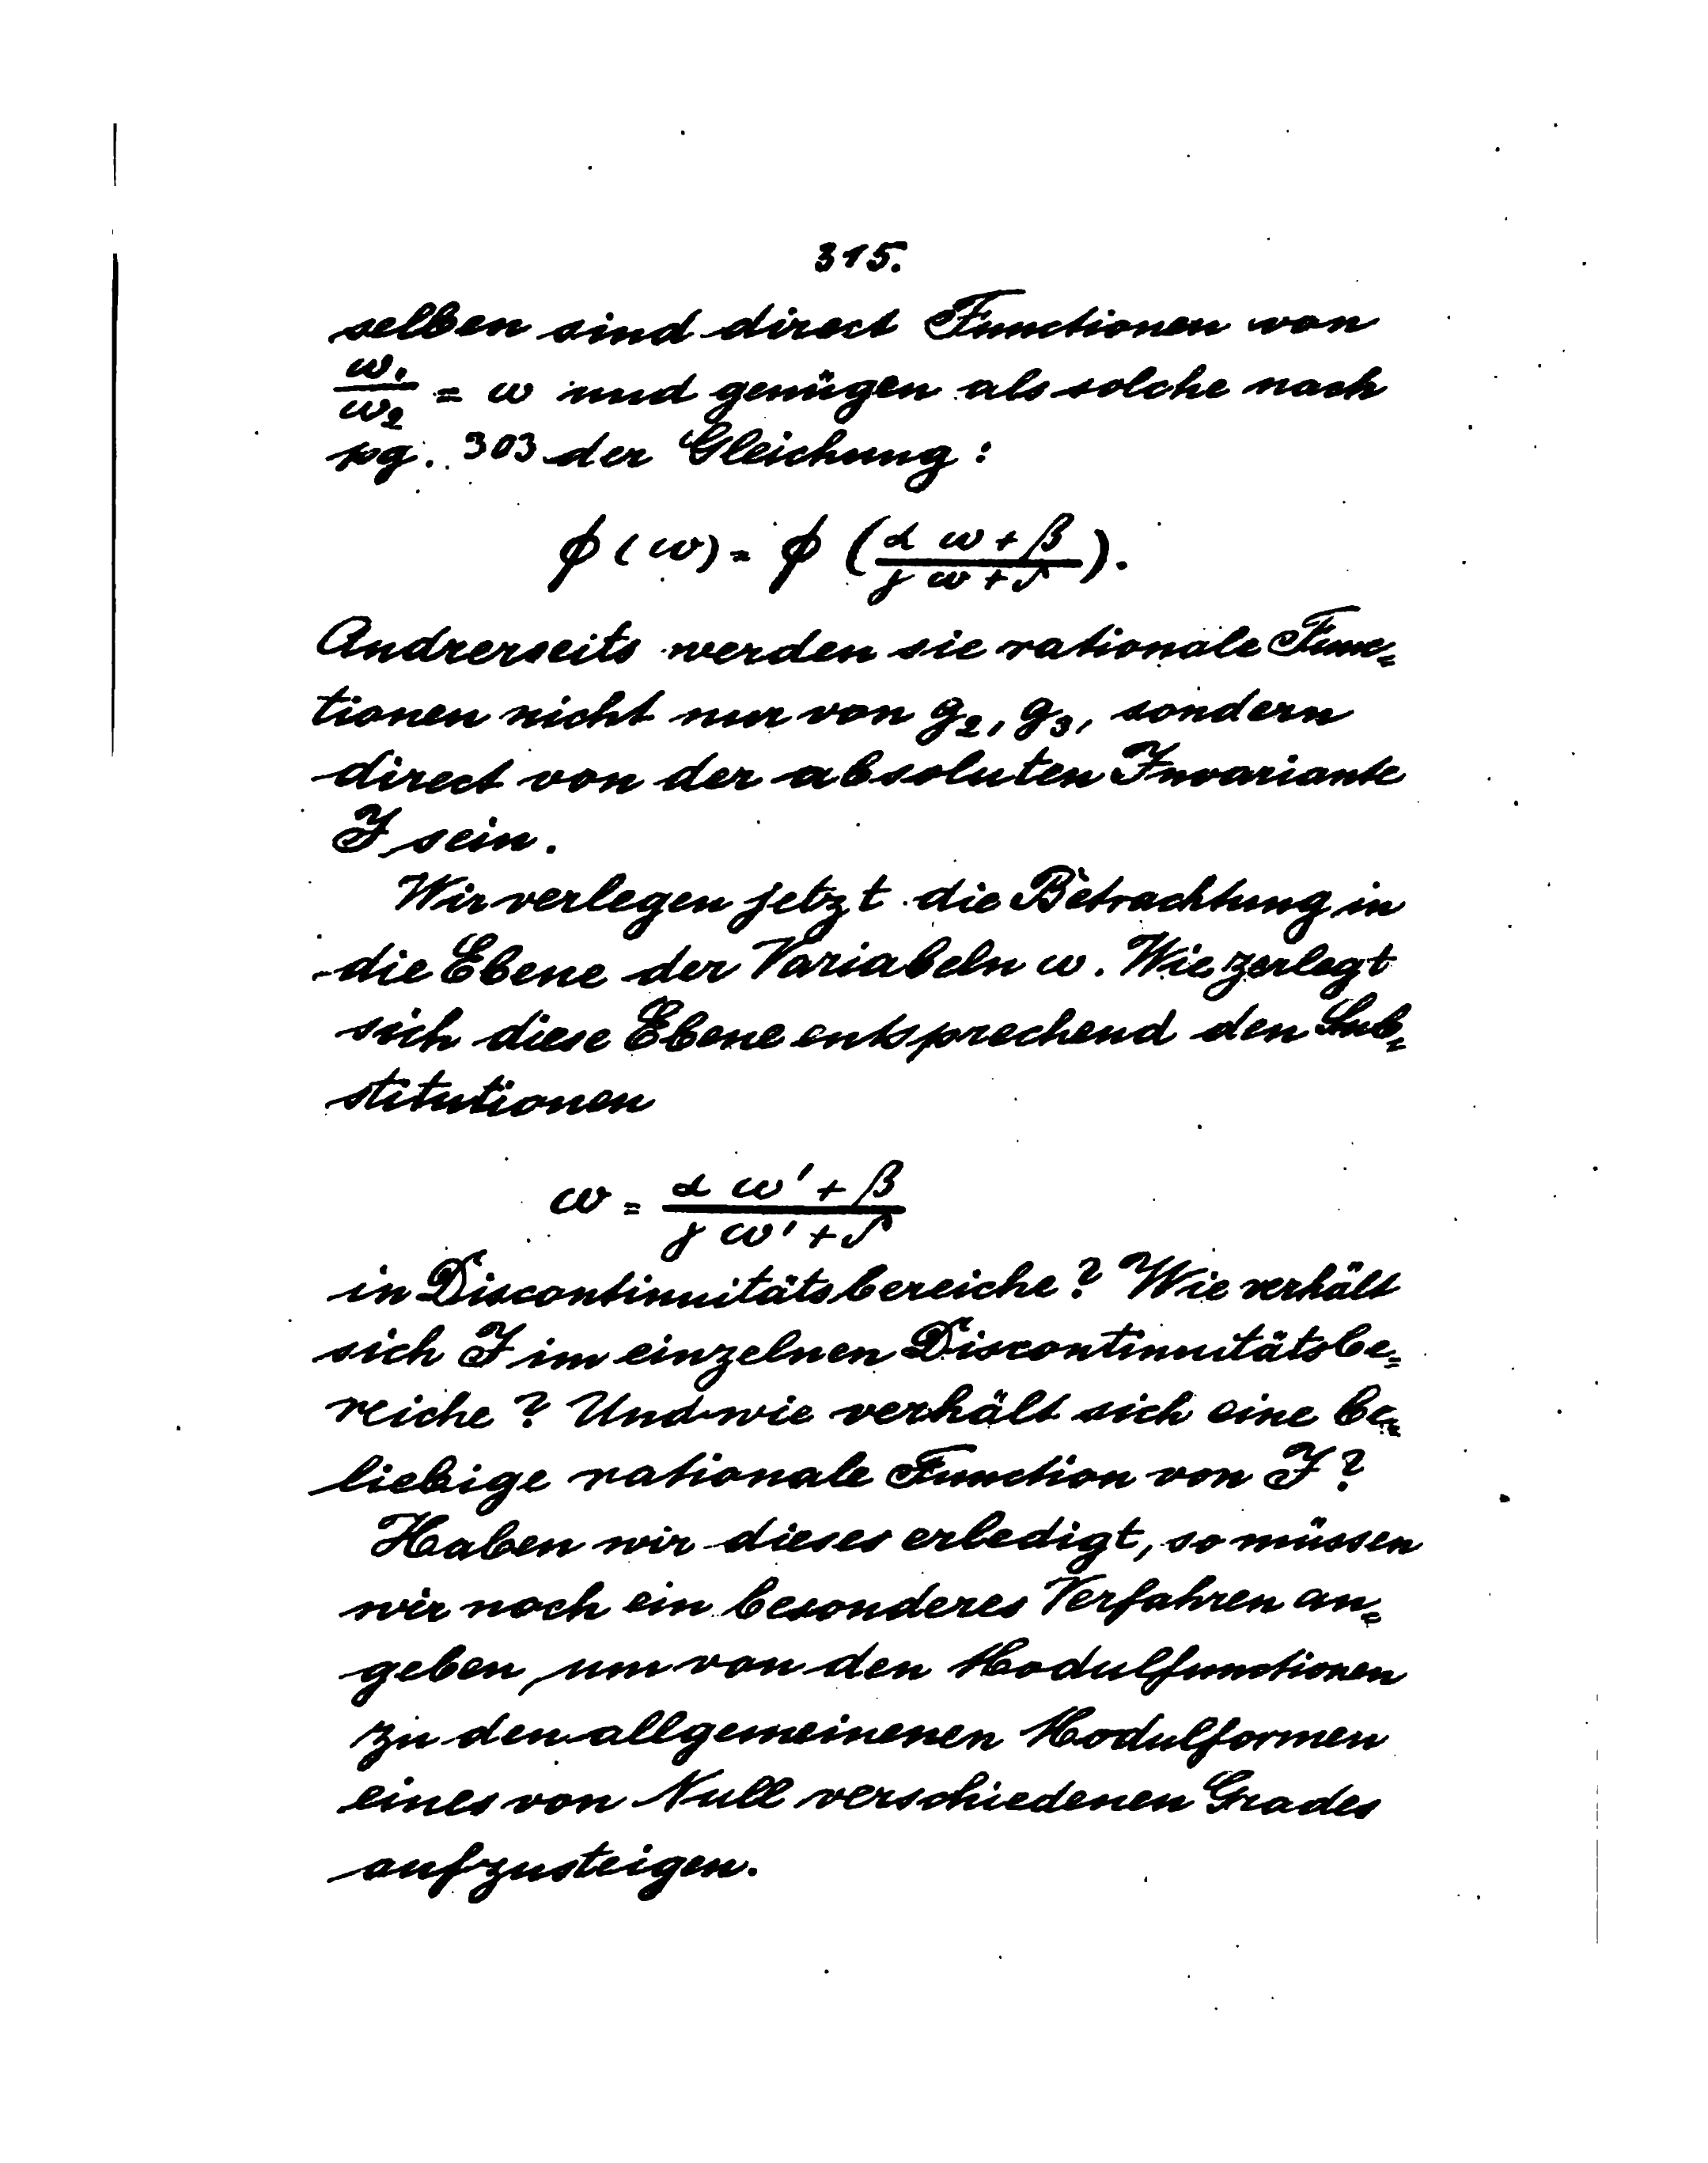 315.
selben sind direct Functionen von
ω₁/ω₂ = ω und genügen als solche nach
pg. 303 der Gleichung:
ϕ(ω) = ϕ((α ω + β)/(γ ω + δ)).
Andrerseits werden sie rationale Func=
tionen nicht nur von g₂, g₃, sondern
direct von der absoluten Invariante
J sein.
Wir verlegen jetzt die Betrachtung in
die Ebene der Variabeln ω. Wie zerlegt
sich diese Ebene entsprechend den Sub=
stitutionen
ω = (α ω' + β)/(γ ω' + δ)
in Discontinuitätsbereiche? Wie verhält
sich J im einzelnen Discontinuitätsbe=
reiche? Und wie verhält sich eine be=
liebige rationale Function von J?
Haben wir dieses erledigt, so müssen
wir noch ein besonderes Verfahren an=
geben, um von den Modulfunctionen
zu den allgemeinenen Modulformen
eines von Null verschiedenen Grades
aufzusteigen.